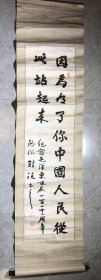 因為有了你中國人民從
此站起來
紀念毛澤東誕辰一百二十周年